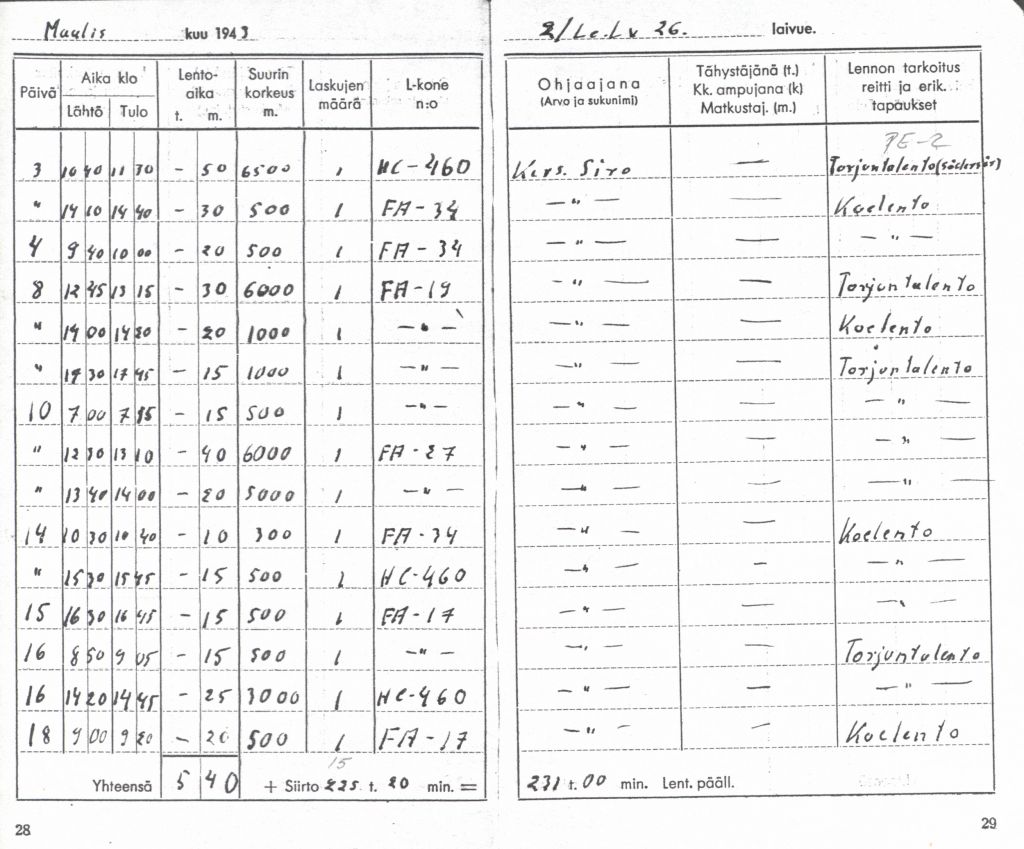 Maalis kuu 1943
2/Le.Lv 26. laivue.
Päivä Aika klo Lento-aika Suurin korkeus m. Laskujen määrä L-kone n:o Ohjaajana (Arvo ja sukunimi) Tähystäjänä (t.) Kk. ampujana (k) Matkustaj. (m.) Lennon tarkoitus reitti ja erik. tapaukset
Lähtö Tulo t. m.
PE-2
3 10 40 11 30 - 50 6500 1 HC-460 Kers. Siro — Torjuntalento
" 14 10 14 40 - 30 500 1 FA-34 — " — — Koelento
4 9 40 10 00 - 20 500 1 FA-34 — " — — — " —
8 12 45 13 15 - 30 6000 1 FA-19 — " — — Torjuntalento
" 14 00 14 20 - 20 1000 1 — " — — " — — Koelento
" 17 30 17 45 - 15 1000 1 — " — — " — — Torjuntalento
10 7 00 7 15 - 15 500 1 — " — — " — — — " —
" 12 30 13 10 - 40 6000 1 FA-27 — " — — — " —
" 13 40 14 00 - 20 5000 1 — " — — " — — — " —
14 10 30 10 40 - 10 300 1 FA-34 — " — — Koelento
" 15 30 15 45 - 15 500 1 HC-460 — " — — — " —
15 16 30 16 45 - 15 500 1 FA-17 — " — — — " —
16 8 50 9 05 - 15 500 1 — " — — " — — Torjuntalento
16 14 20 14 45 - 25 3000 1 HC-460 — " — — — " —
18 9 00 9 20 - 20 500 1 FA-17 — " — — Koelento
15
Yhteensä 5 40 + Siirto 225 t. 20 min. = 231 t. 00 min. Lent. pääll.
28
29